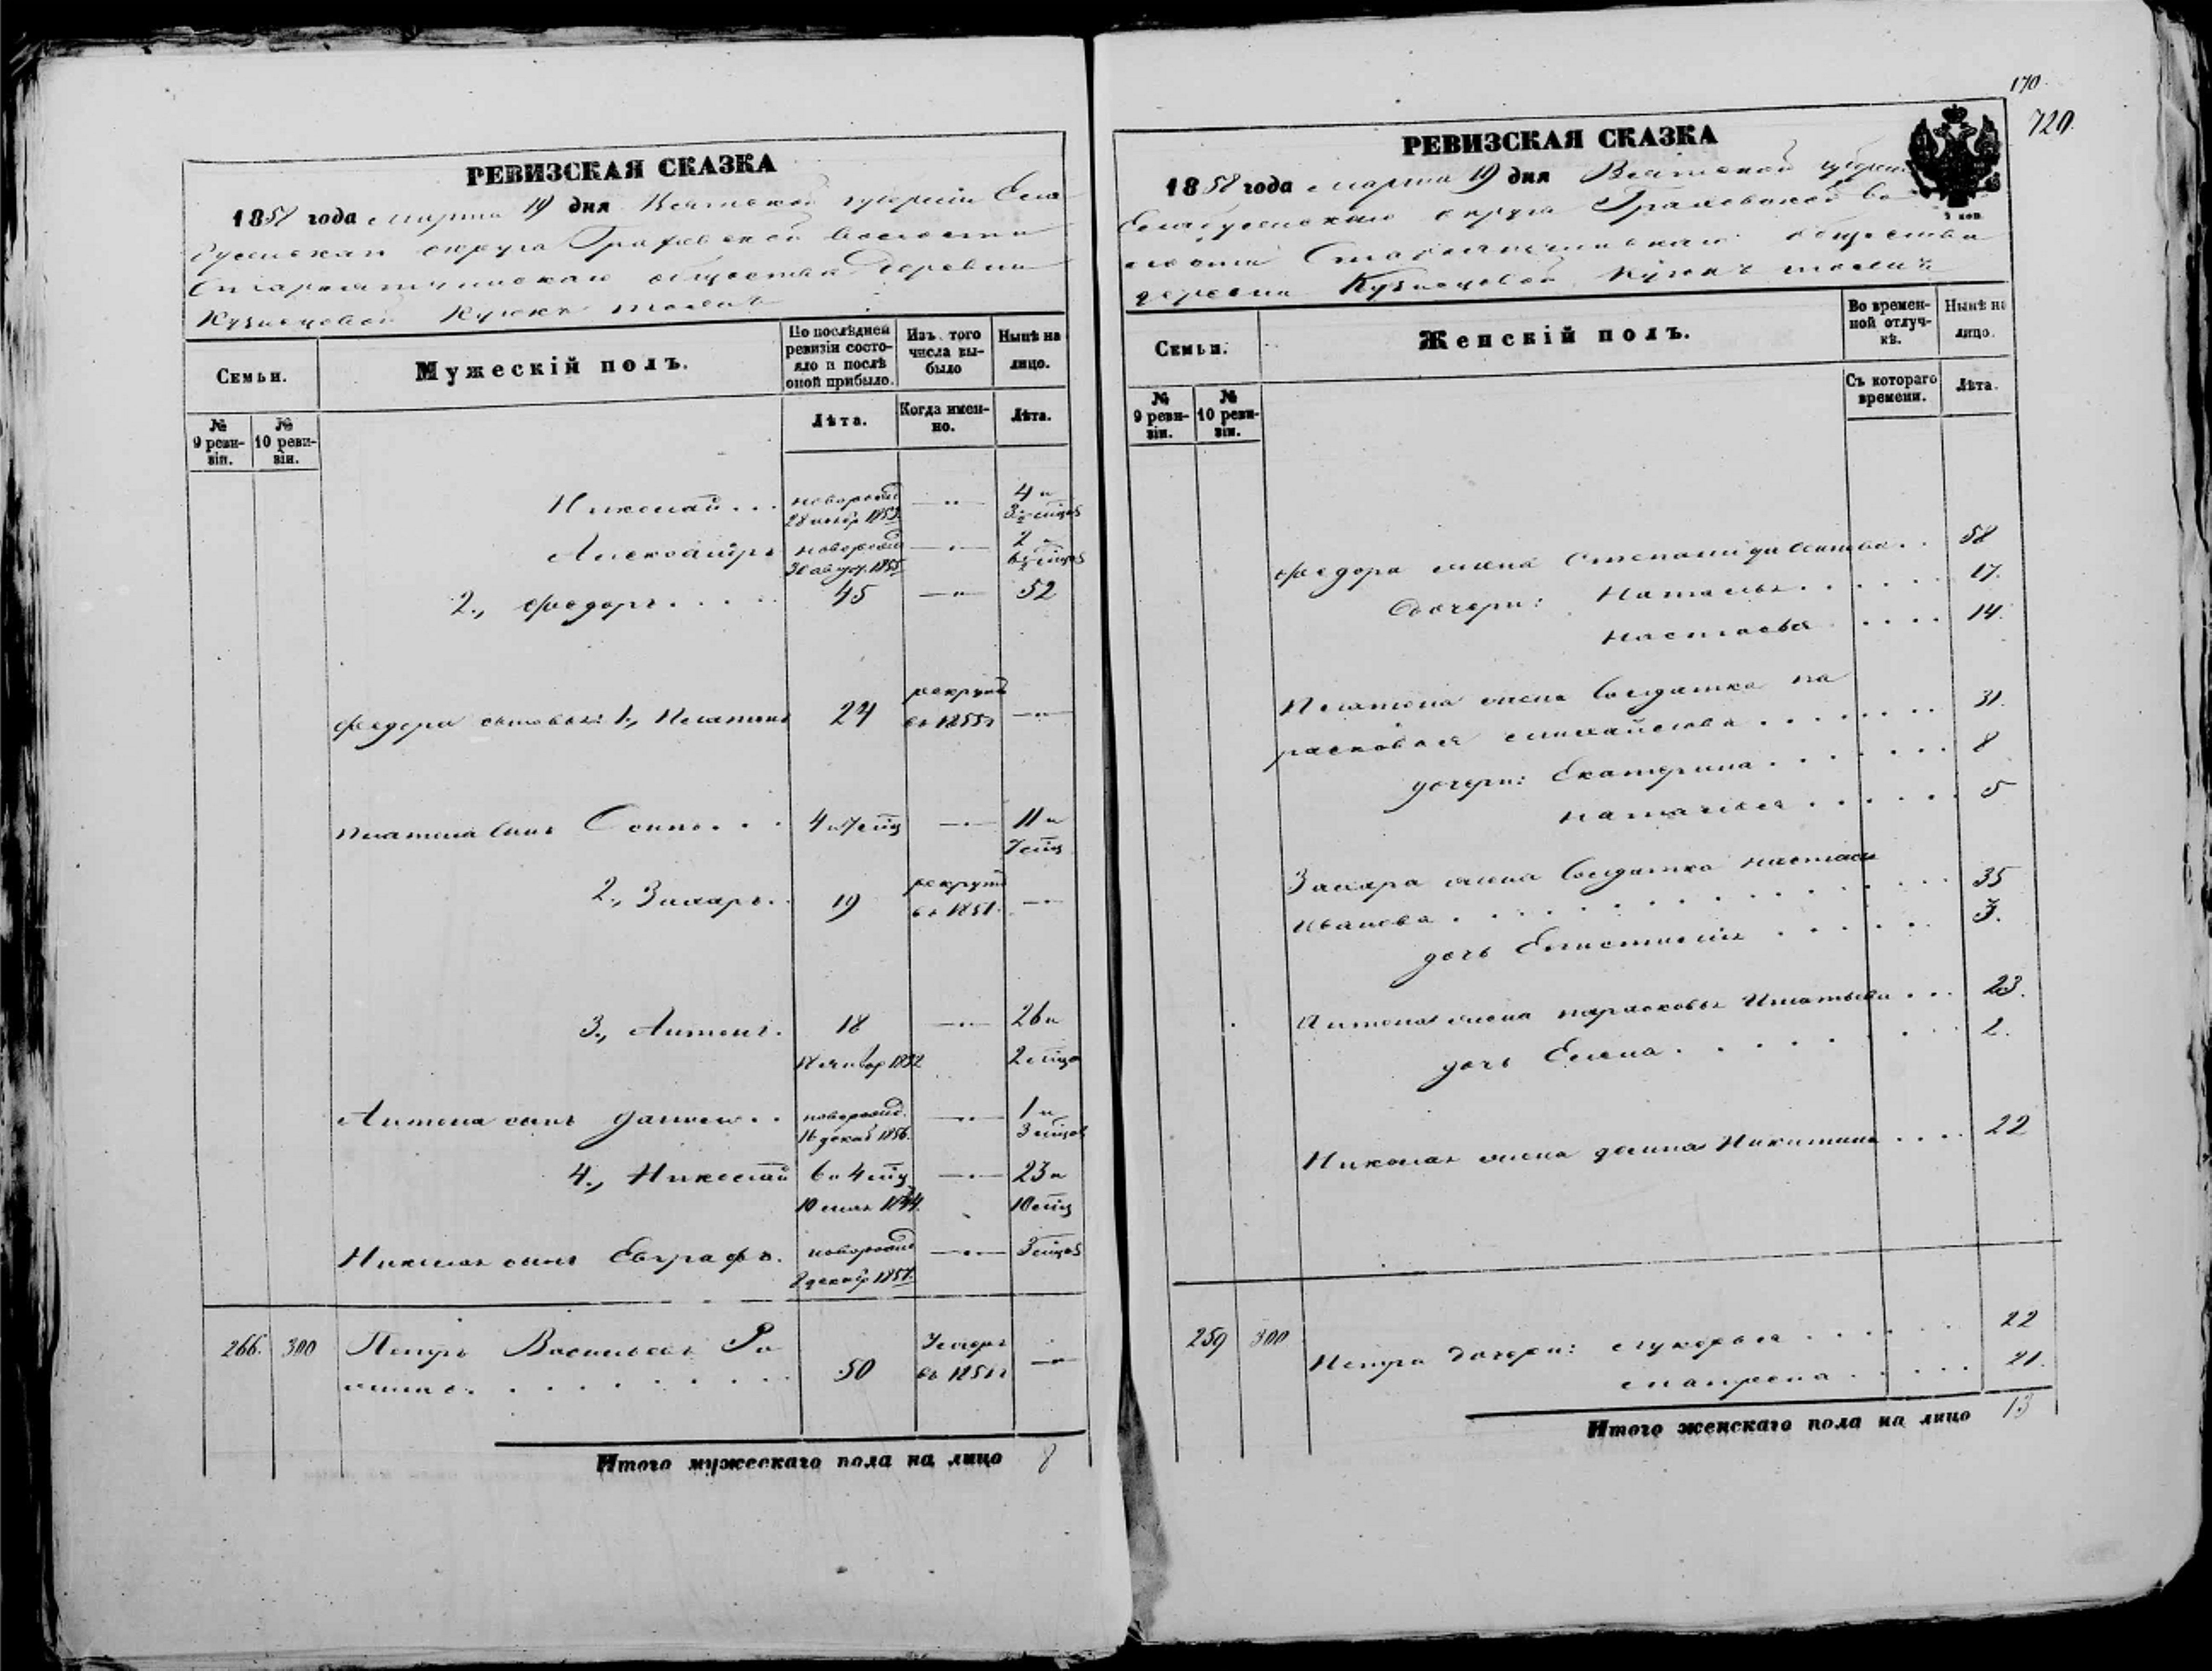 РЕВИЗСКАЯ СКАЗКА
1858 года марта 19 дня Вятской губерніи Ела
округа Граховской волости
общества деревни
Кузнецовой
Семьи.
Мужескій полъ.
По послѣдней ревизіи состояло и послѣ оной прибыло.
Изъ того числа выбыло
Нынѣ на лицо.
№ 9 ревизіи.
№ 10 ревизіи.
Лѣта.
Когда именно.
Лѣта.
Николай . . . новорожд 28 1853 —"— 4 и 3½ мѣцов
Александръ новорожд 30 1855 —"— 2 и 6½ мѣцов
2., Федоръ . . . . 45 —"— 52
Федора сыновья: 1, Платонъ 24 рекрут въ 1855 г —"—
Платона сынъ Осипъ . . . 4 и 7 мѣц —"— 11 и 7 мѣц
2., Захаръ . . 19 рекрут въ 1851. —"—
3., Антонъ . 18 —"— 26 и
1832 2 мѣца
Антона сынъ Данило . . новорожд. 16 декаб 1856. —"— 1 и 3 мѣцов
4., Николай 6 и 4 мѣц —"— 23 и
10 1844. 10 мѣц
Николая сынъ Евграфъ . новорожд 2 декабр 1857. —"— 3 мѣцов
266. 300 Петръ Васильевъ
. . . . . . . . . 50 Умеръ въ —"—
Итого мужескаго пола на лицо 8
170.
720.
РЕВИЗСКАЯ СКАЗКА
1858 года марта 19 дня Вятской губерніи
Елабужскаго округа Граховской во
лости общества
деревни Кузнецовой
Семьи.
Женскій полъ.
Во временной отлучкѣ.
Нынѣ на лицо.
№ 9 ревизіи.
№ 10 ревизіи.
Съ котораго времени.
Лѣта.
Федора жена Степанида . . 58
Дочери: Наталья . . . . . . 17.
Настасья . . . . . 14.
Платона жена солдатка Па
расковья Михайлова . . . . . . . 31.
дочери: Екатерина . . . . . . . 8
Наталья . . . . . . 5
Захара жена солдатка Настасья
Иванова . . . . . . . . . . . . 35
дочь . . . . . .
Антона жена Парасковья Игнатьева . . . 23.
дочь Елена . . . . . . . . 2.
Николая жена Никитина . . . . 22
259 300 Петра дочери: Лукерья . . . . . . 22
Матрена . . . . . 21.
Итого женскаго пола на лицо 13